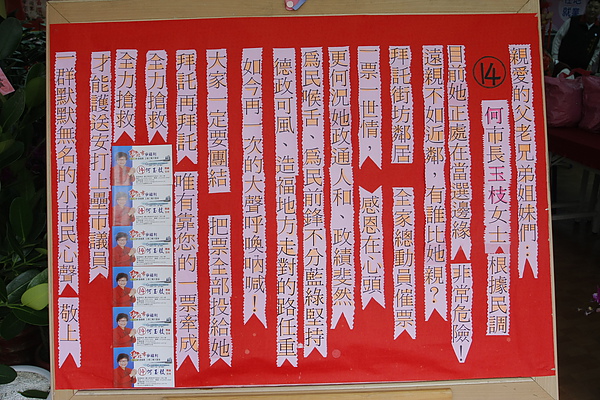 親愛的父老兄弟姐妹們:
⑭
何市長玉枝女士根據民調
目前她正處在當選邊緣非常危險!
遠親不如近鄰,有誰比她親?
拜託街坊鄰居全家總動員催票
一票一世情,感恩在心頭
更何況她政通人和、政績斐然
為民喉舌、為民前鋒不分藍綠堅持
德政可風、造福地方走對的路任重
如今再一次的大聲呼喚吶喊!
大家一定要團結把票全部投給她
拜託再拜託唯有靠您的一票牽成
全力搶救全力搶救
才能護送女打上壘市議員
一群默默無名的小市民心聲敬上
何玉枝
何玉枝
何玉枝
何玉枝
何玉枝
何玉枝